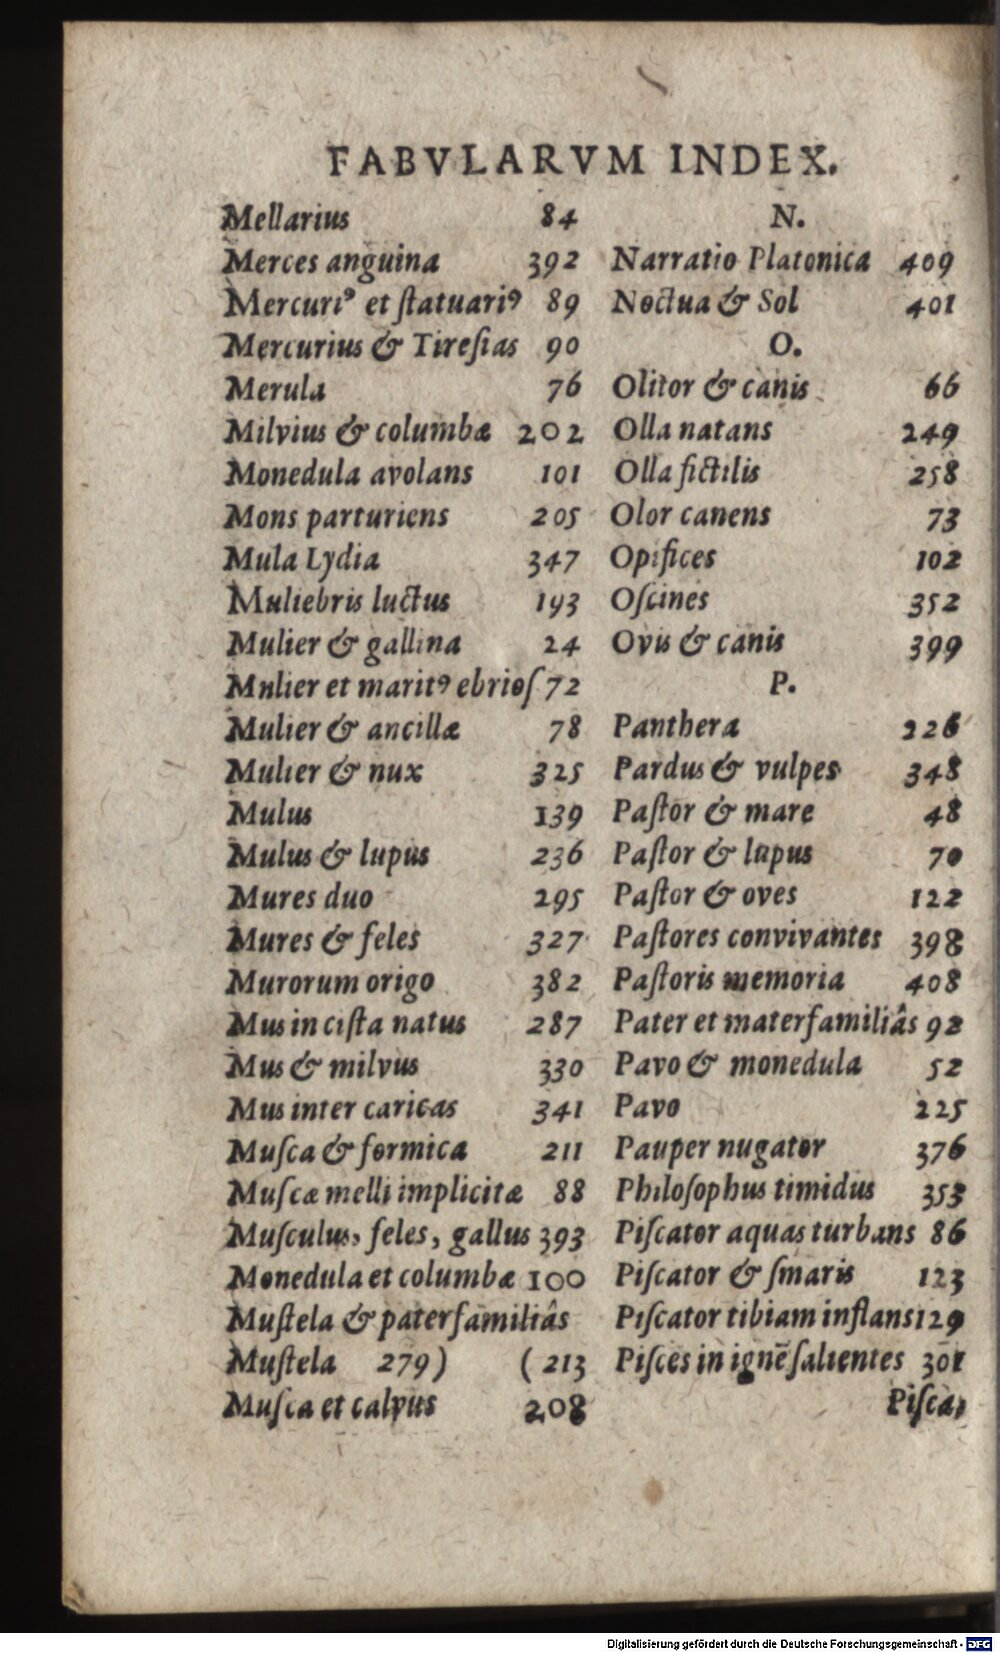 FABVLARVM INDEX.
Mellarius 84
Merces anguina 392
Mercuriꝰ et ſtatuariꝰ 89
Mercurius & Tireſias 90
Merula 76
Milvius & columbæ 202
Monedula avolans 101
Mons parturiens 205
Mula Lydia 347
Muliebris luctus 193
Mulier & gallina 24
Mnlier et maritꝰ ebrioſ 72
Mulier & ancillæ 78
Mulier & nux 325
Mulus 139
Mulus & lupus 236
Mures duo 295
Mures & feles 327
Murorum origo 382
Mus in ciſta natus 287
Mus & milvus 330
Mus inter caricas 341
Muſca & formica 211
Muſcæ melli implicitæ 88
Muſculus, feles, gallus 393
Monedula et columbæ 100
Muſtela & paterfamiliâs
Muſtela 279) (213
Muſca et calvus 208
N.
Narratio Platonica 409
Noctua & Sol 401
O.
Olitor & canis 66
Olla natans 249
Olla fictilis 258
Olor canens 73
Opifices 102
Oſcines 352
Ovis & canis 399
P.
Panthera 226
Pardus & vulpes 348
Paſtor & mare 48
Paſtor & lupus 70
Paſtor & oves 122
Paſtores convivantes 398
Paſtoris memoria 408
Pater et materfamiliâs 92
Pavo & monedula 52
Pavo 225
Pauper nugator 376
Philoſophus timidus 353
Piſcator aquas turbans 86
Piſcator & ſmaris 123
Piſcator tibiam inflans 129
Piſces in ignē ſalientes 301
Piſca,
Digitalisierung gefördert durch die Deutsche Forschungsgemeinschaft - DFG